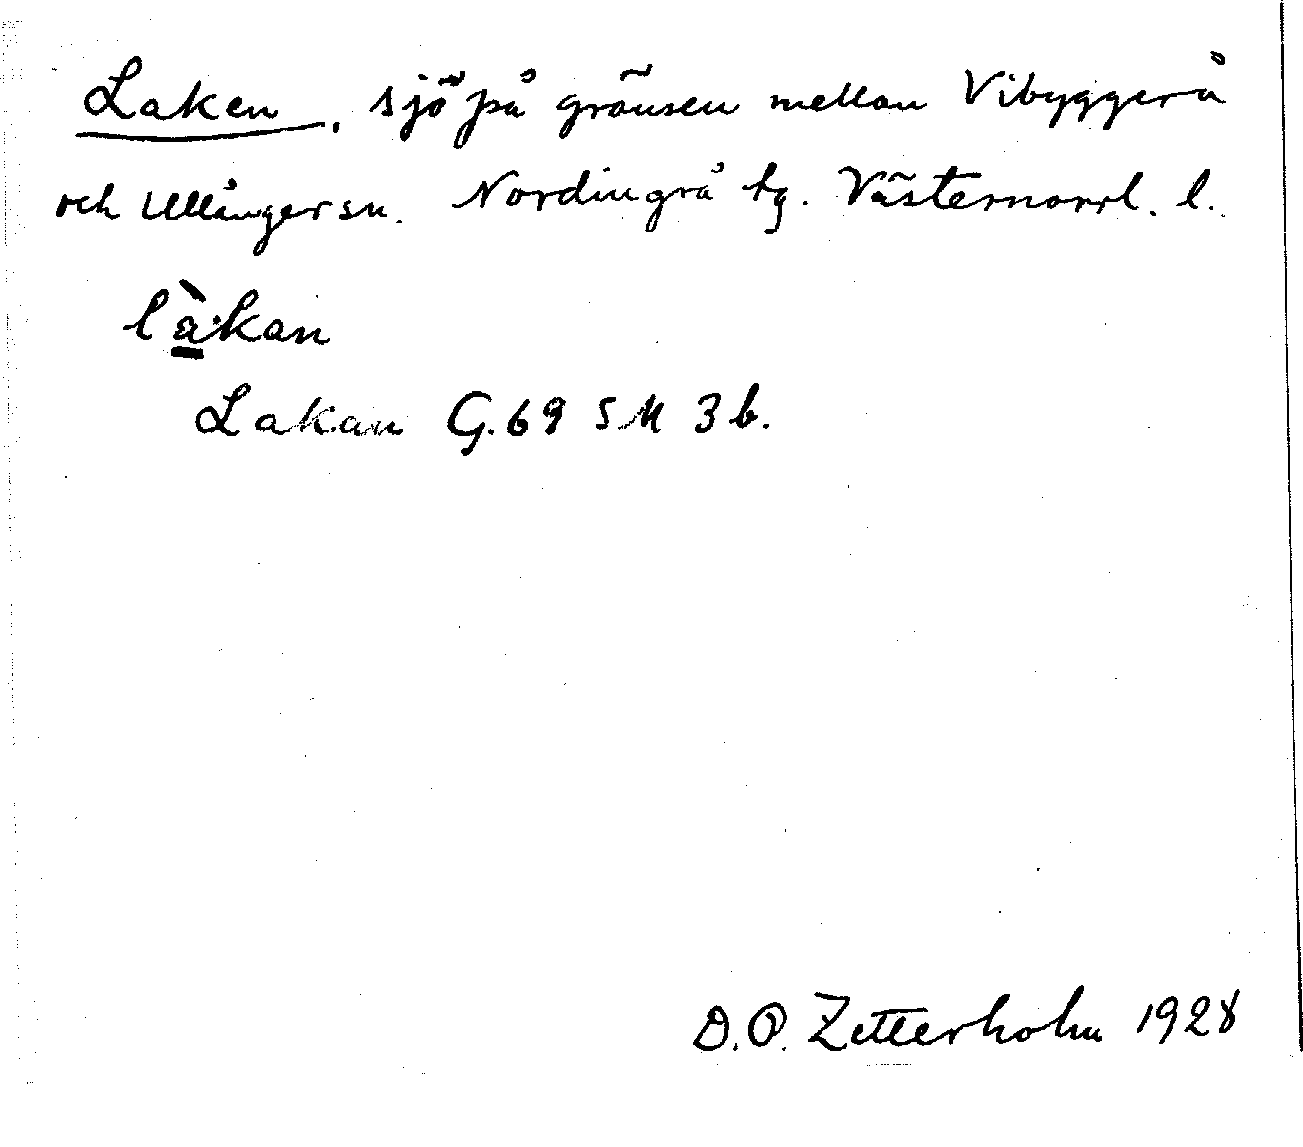 Laken, sjö på gränsen mellan Vibyggerå
och Ullånger sn. Nordingrå tg. Västernorrl. l.
là̱·kan
Lakan G.69 SM 3 b.
D.O. Zetterholm 1928